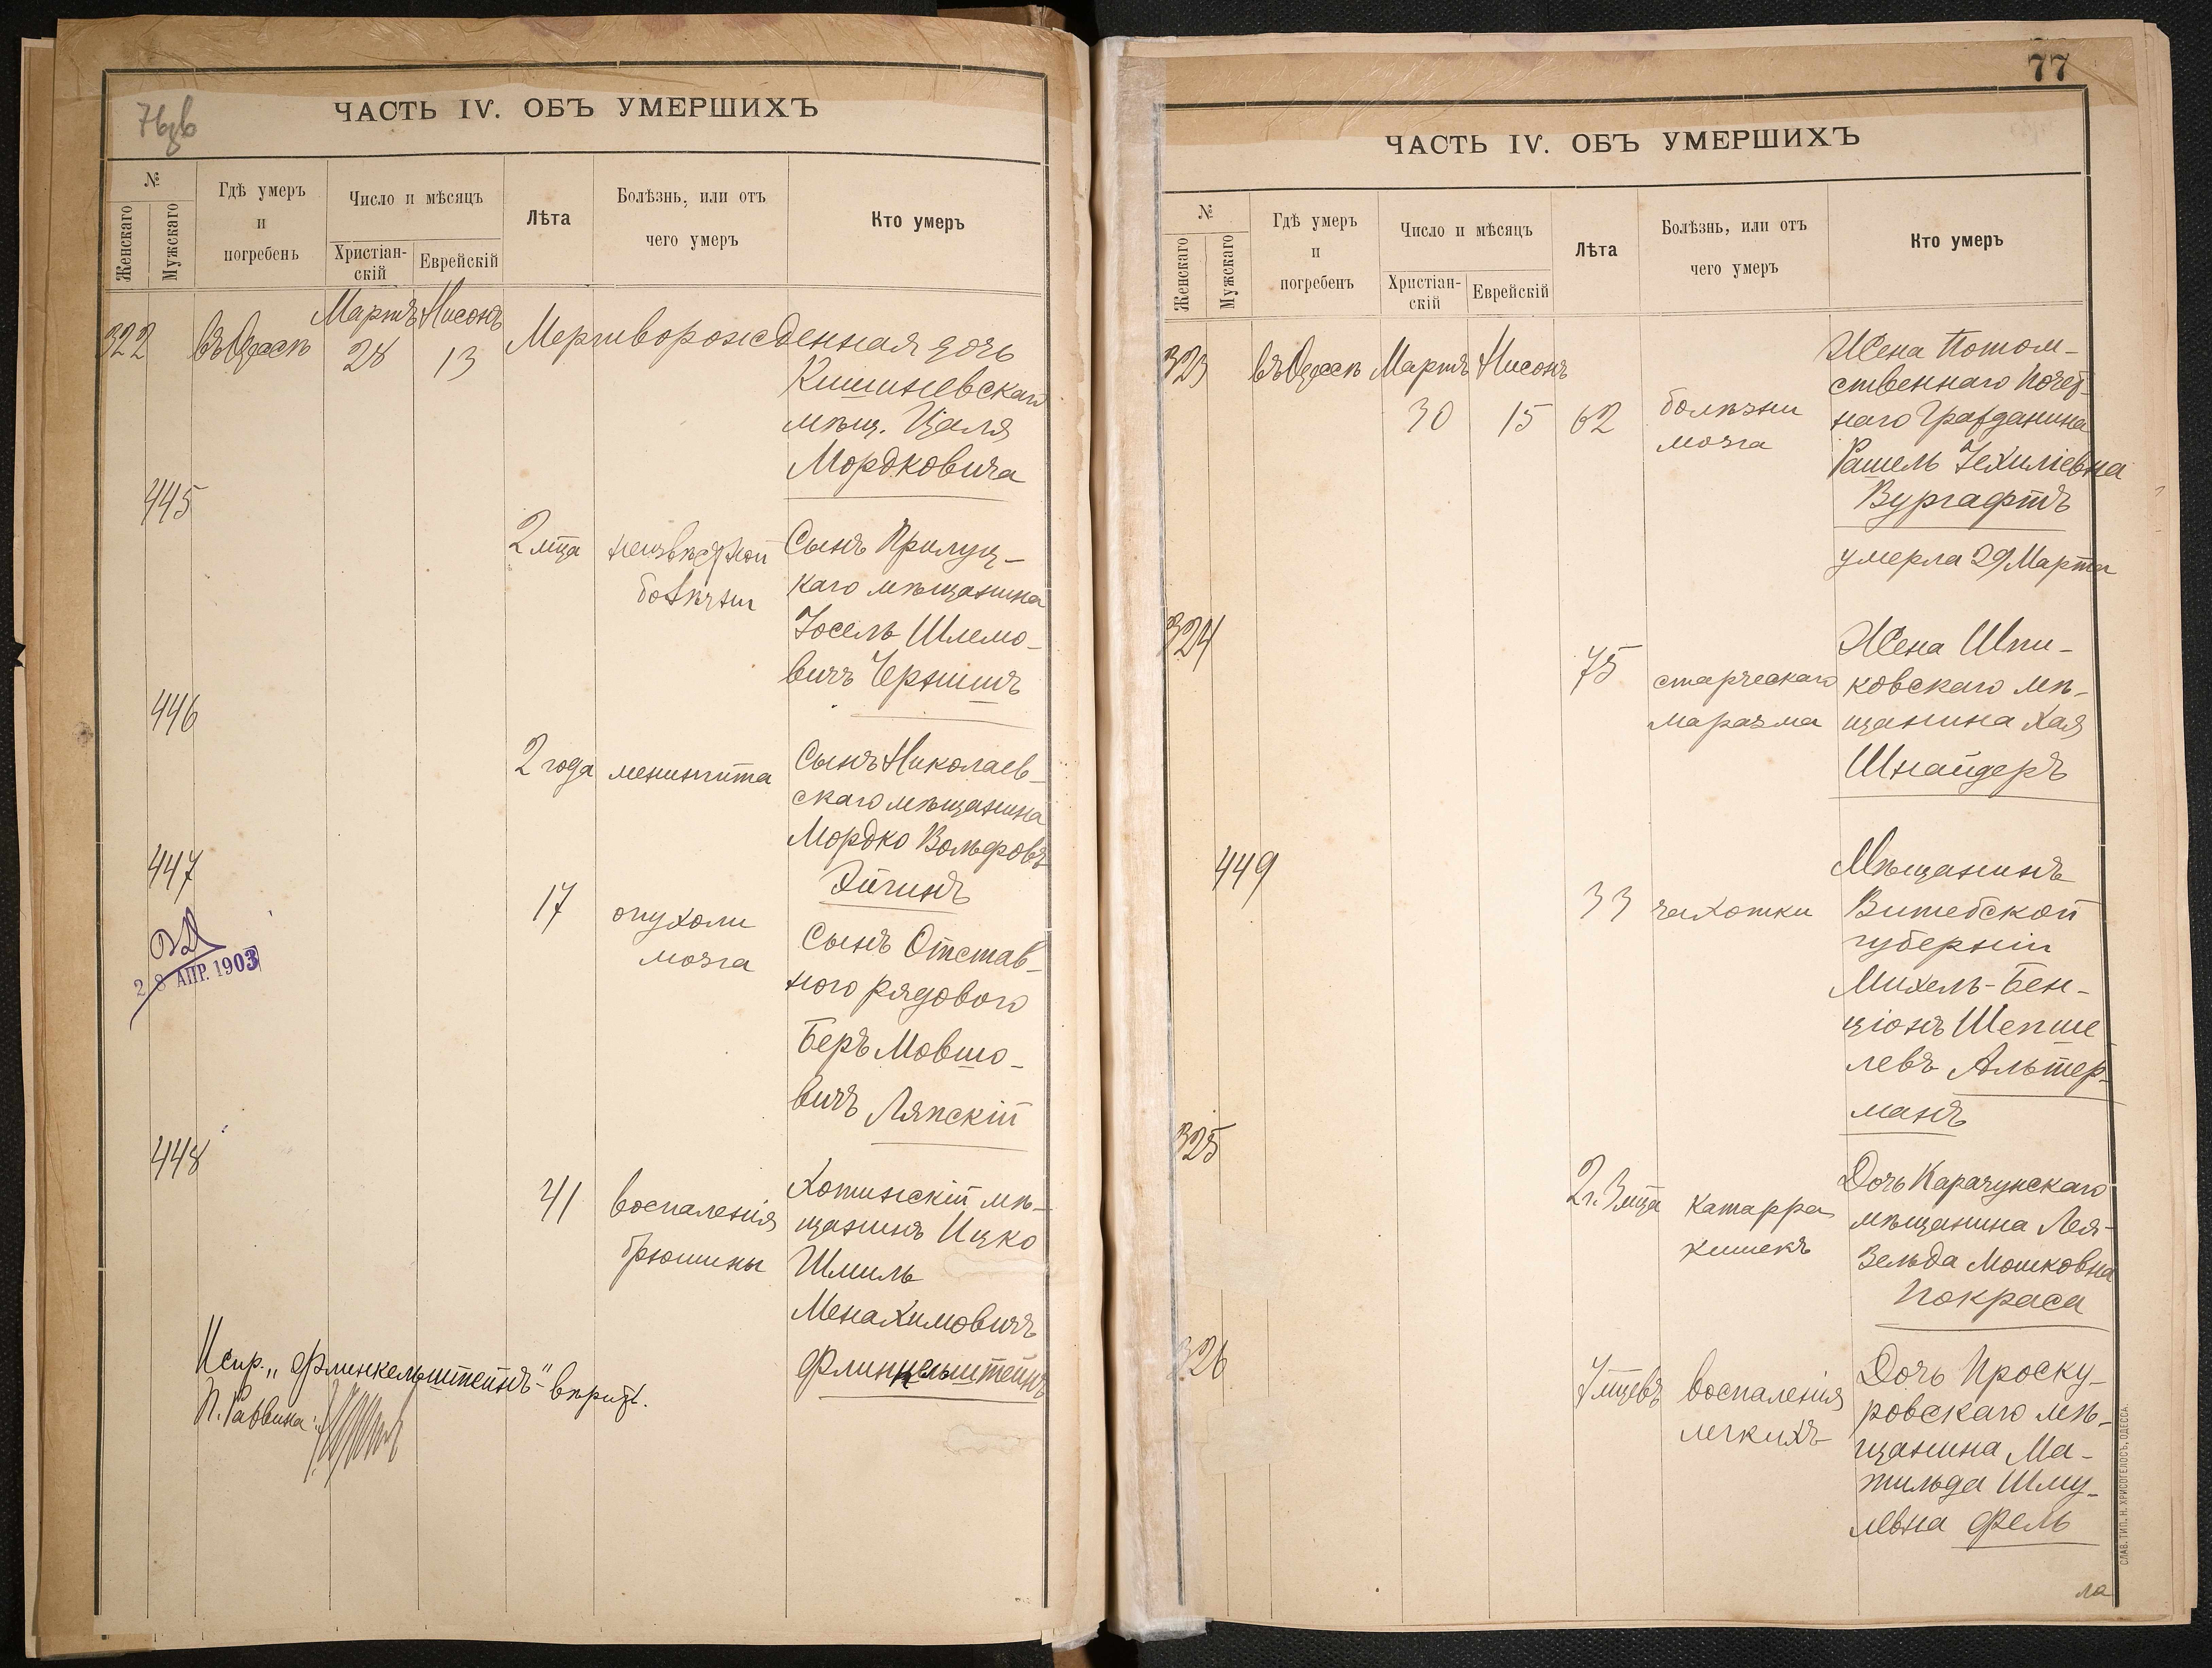 76об
ЧАСТЬ IV. ОБЪ УМЕРШИХЪ
№
Женскаго
Мужскаго
Гдѣ умеръ
и
погребенъ
Число и мѣсяцъ
Христіан-
скій
Еврейскій
Лѣта
Болѣзнь, или отъ
чего умеръ
Кто умеръ
Мартъ Нисонъ
322 въ Одессѣ 28 13 Мертворожденная дочь
Кишиневскаго
мѣщ. Цаля
Мордковича
445
2 мца неизвѣстной болѣзни
Сынъ Прилуц-
каго мѣщанина
Іосель Шлемо-
вичъ Чернинъ
446
2 года менингита
Сынъ Николаев-
скаго мѣщанина
Мордко Вольфовъ
Эйгинъ
447
17 опухоли
мозга
Сынъ Отстав-
ного рядового
Беръ Мовшо-
вичъ Ляпскій
28 АПР. 1903
448
41 воспаленія
брюшины
Хотинскій мѣ-
щанинъ Ицко
Шмиль
Менахимовичъ
Флинкельштейнъ
Испр. „Флинкельштейнъ" вѣрно.
П. Раввина:
77
ЧАСТЬ IV. ОБЪ УМЕРШИХЪ
№
Женскаго
Мужскаго
Гдѣ умеръ
и
погребенъ
Число и мѣсяцъ
Христіан-
скій
Еврейскій
Лѣта
Болѣзнь, или отъ
чего умеръ
Кто умеръ
323 въ Одессѣ Мартъ Нисонъ
30 15 62 болѣзни
мозга
Жена Потом-
ственнаго Почет-
наго Гражданина
Рашель Іехиліевна
Вургафтъ
умерла 29 Марта
324
75 старческаго
маразма
Жена Шпи-
ковскаго мѣ-
щанина Хая
Шнайдеръ
449
33 чахотки
Мѣщанинъ
Витебской
губерніи
Михель-Бен-
ціонъ Шепше
левъ Альтер-
манъ
325
2 г. 3 мца катарра
кишекъ
Дочь Карачунскаго
мѣщанина Лея-
Зельда Мошковна
Покраса
326
7 мцевъ воспаленія
легкихъ
Дочь Проску-
ровскаго мѣ-
щанина Ма-
тильда Шму-
левна Фель
ла
СЛАВ. ТИП. Н. ХРИСОГЕЛОСЪ, ОДЕССА.